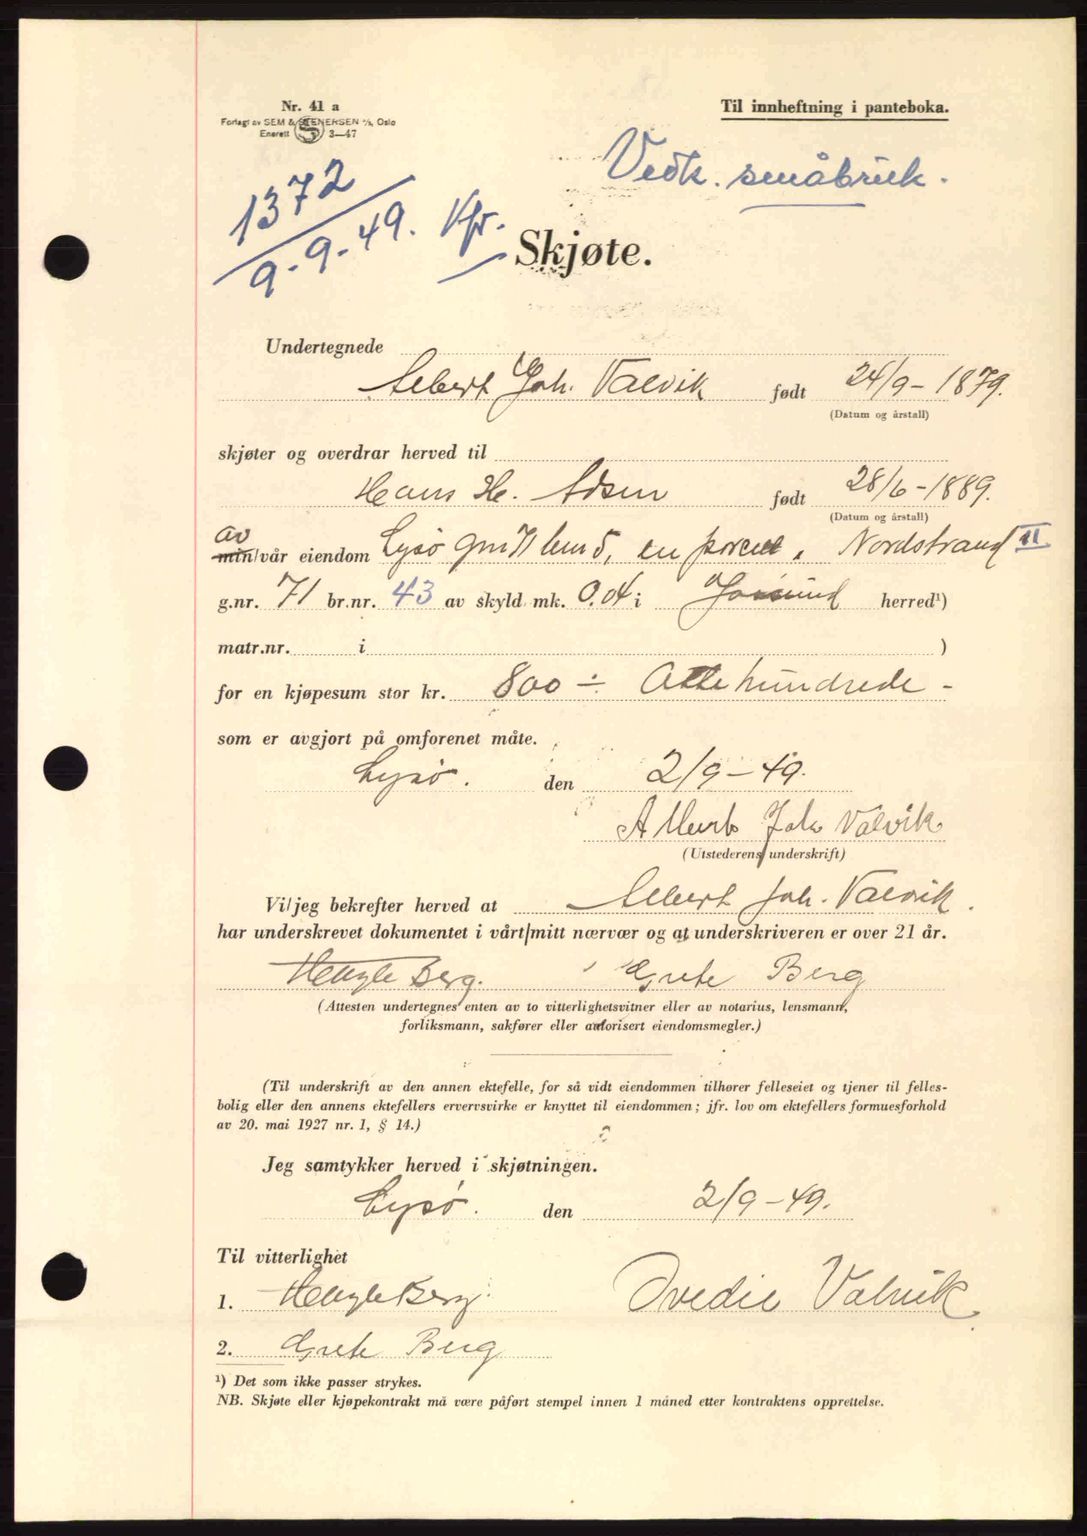 Nr. 41 a
Forlagt av SEM & STENERSEN A/S, Oslo
Enerett 3—47
Til innheftning i panteboka.
Vedk. småbruk.
1372
9-9-49. Kfr.
Skjøte.
Undertegnede
Albert Joh. Valvik født 24/9-1879.
(Datum og årstall)
skjøter og overdrar herved til
Hans H. født 28/6-1889.
(Datum og årstall)
av
min/vår eiendom Lysø gnr 71 bnr 5, en parcell, Nordstrand II
g.nr. 71 br.nr. 43 av skyld mk. 0.04 i Jøssund herred¹)
matr.nr. i )
for en kjøpesum stor kr. 800 ÷ Åttehundrede -
som er avgjort på omforenet måte.
Lysø. den 2/9-49.
Albert Joh Valvik
(Utstederens underskrift)
Vi/jeg bekrefter herved at Albert Joh. Valvik.
har underskrevet dokumentet i vårt/mitt nærvær og at underskriveren er over 21 år.
Berg. Grete Berg
(Attesten undertegnes enten av to vitterlighetsvitner eller av notarius, lensmann,
forliksmann, sakfører eller autorisert eiendomsmegler.)
(Til underskrift av den annen ektefelle, for så vidt eiendommen tilhører felleseiet og tjener til felles-
bolig eller den annens ektefellers ervervsvirke er knyttet til eiendommen; jfr. lov om ektefellers formuesforhold
av 20. mai 1927 nr. 1, § 14.)
Jeg samtykker herved i skjøtningen.
Lysø. den 2/9-49.
Til vitterlighet
1. Berg. Ovedie Valvik.
2. Grete Berg
¹) Det som ikke passer strykes.
NB. Skjøte eller kjøpekontrakt må være påført stempel innen 1 måned etter kontraktens opprettelse.